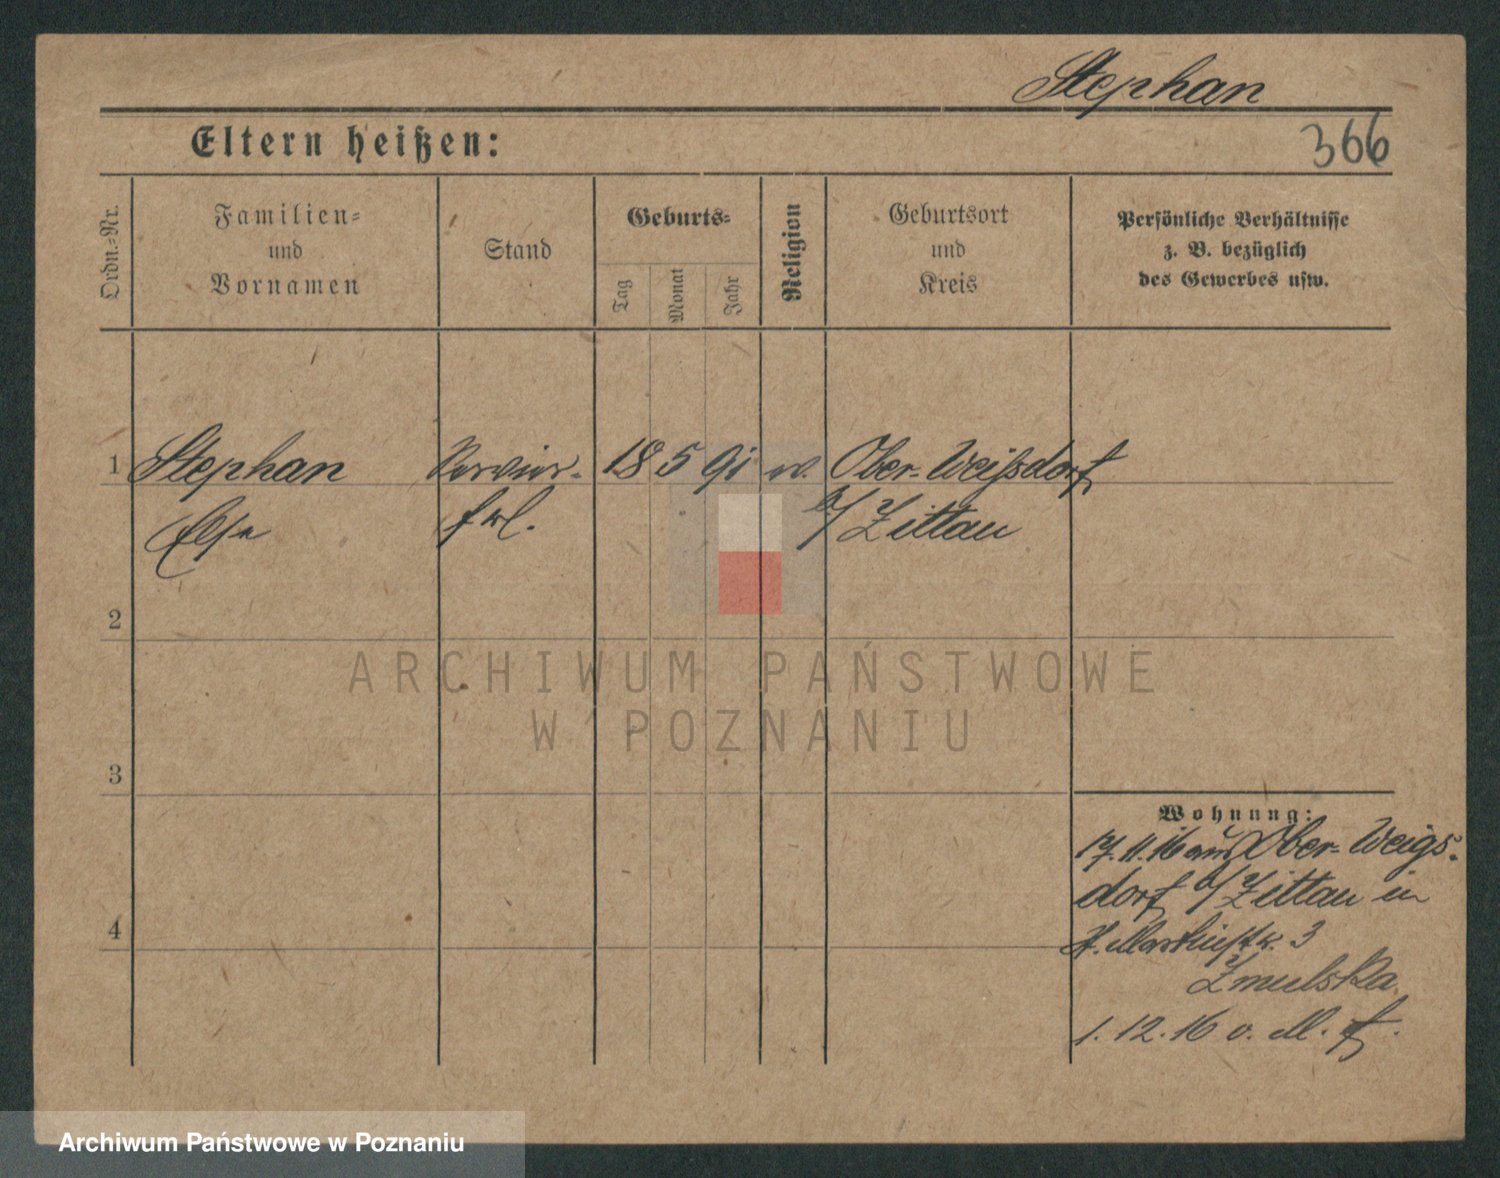 Stephan
366
Eltern heißen:
Ordn.-Nr.
Familien-
und
Vornamen
Stand
Geburts-
Tag
Monat
Jahr
Religion
Geburtsort
und
Kreis
Persönliche Verhältnisse
z. B. bezüglich
des Gewerbes usw.
1 Stephan Servier- 18 5 91 ev. Ober-Weigsdorf
Else frl. b/ Zittau
2
3
4
Wohnung:
17.11.16 aus Ober-Weigs-
dorf b/ Zittau in
3
Zmulska
1.12.16 v. M. f.
ARCHIWUM PAŃSTWOWE
W POZNANIU
Archiwum Państwowe w Poznaniu